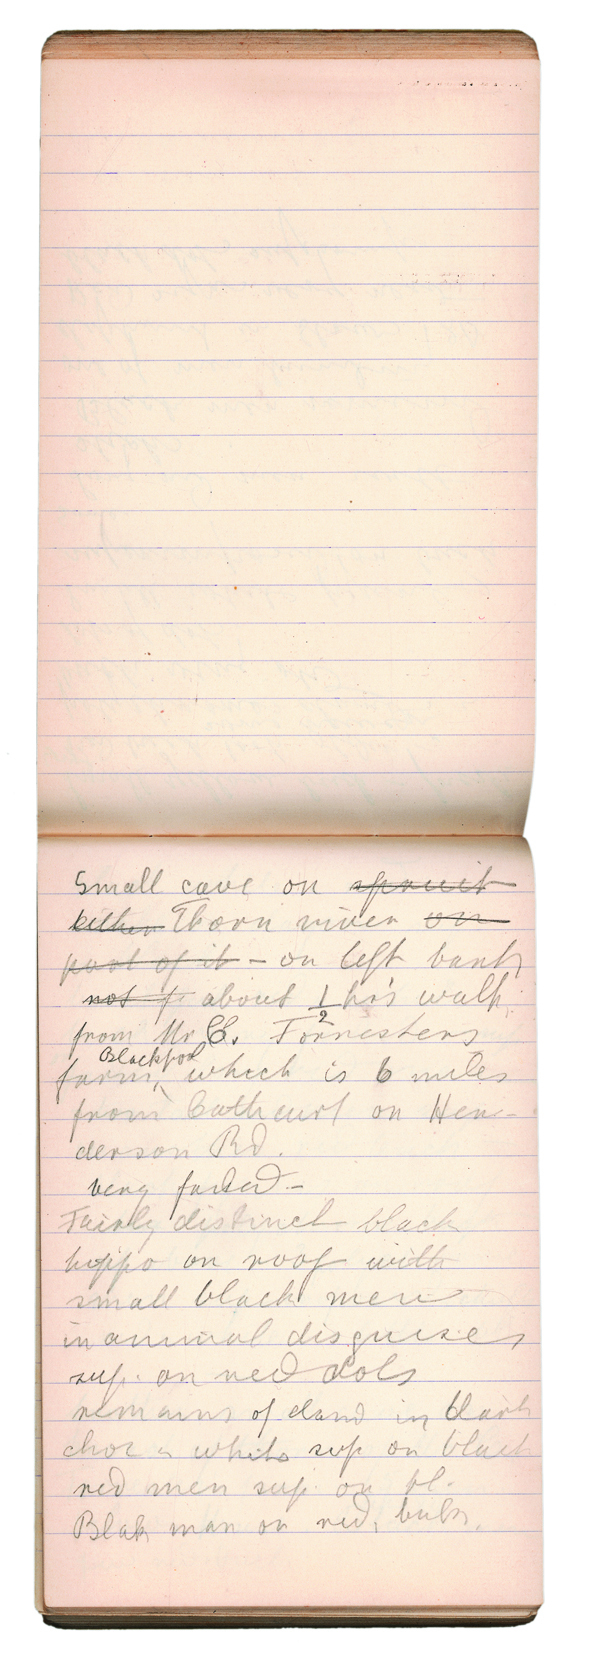 Small cave on spruit
either Thorn river on
part of it - on left bank
not f about 1/2 hr's walk
from Mr C. Forresters
Blackpool
farm, which is 6 miles
from Cathcart on Hen-
derson Rd.
very faded -
Fairly distinct black
hippo on roof with
small black men
in animal disguises
sup. on red dots
remains of eland in dark
choc & white sup on black
red men sup on bl.
Blak man on red,